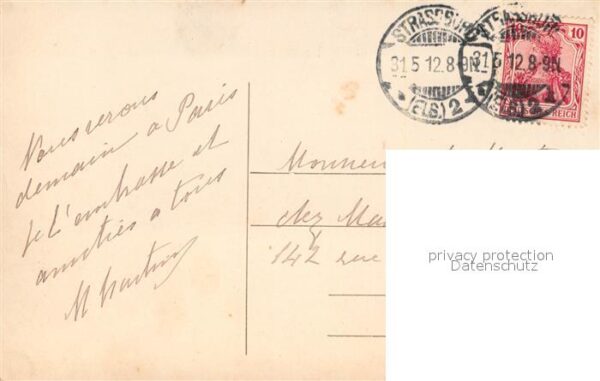 Nous serons
demain à Paris
je t'embrasse et
amitiés a tous
M
STRASSBURG
31.5.12.8-9N.
* (ELS.) 2 *
STRASSBURG
31.5.12.8-9N.
* (ELS.) 2 *
10
REICH
Monsieur
chez Ma
142 rue
privacy protection
Datenschutz